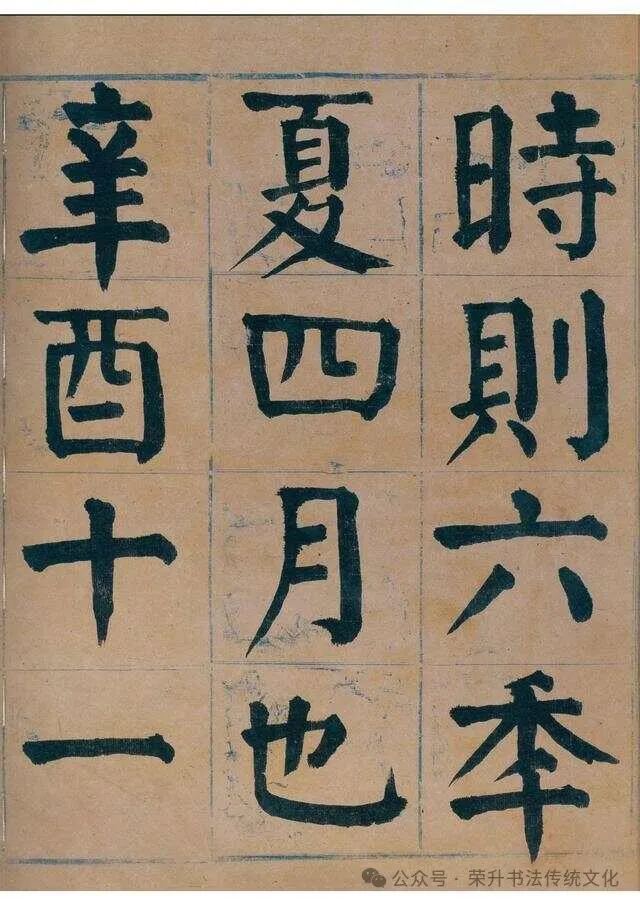 時則六秊
夏四月也
辛酉十一
公众号·荣升书法传统文化